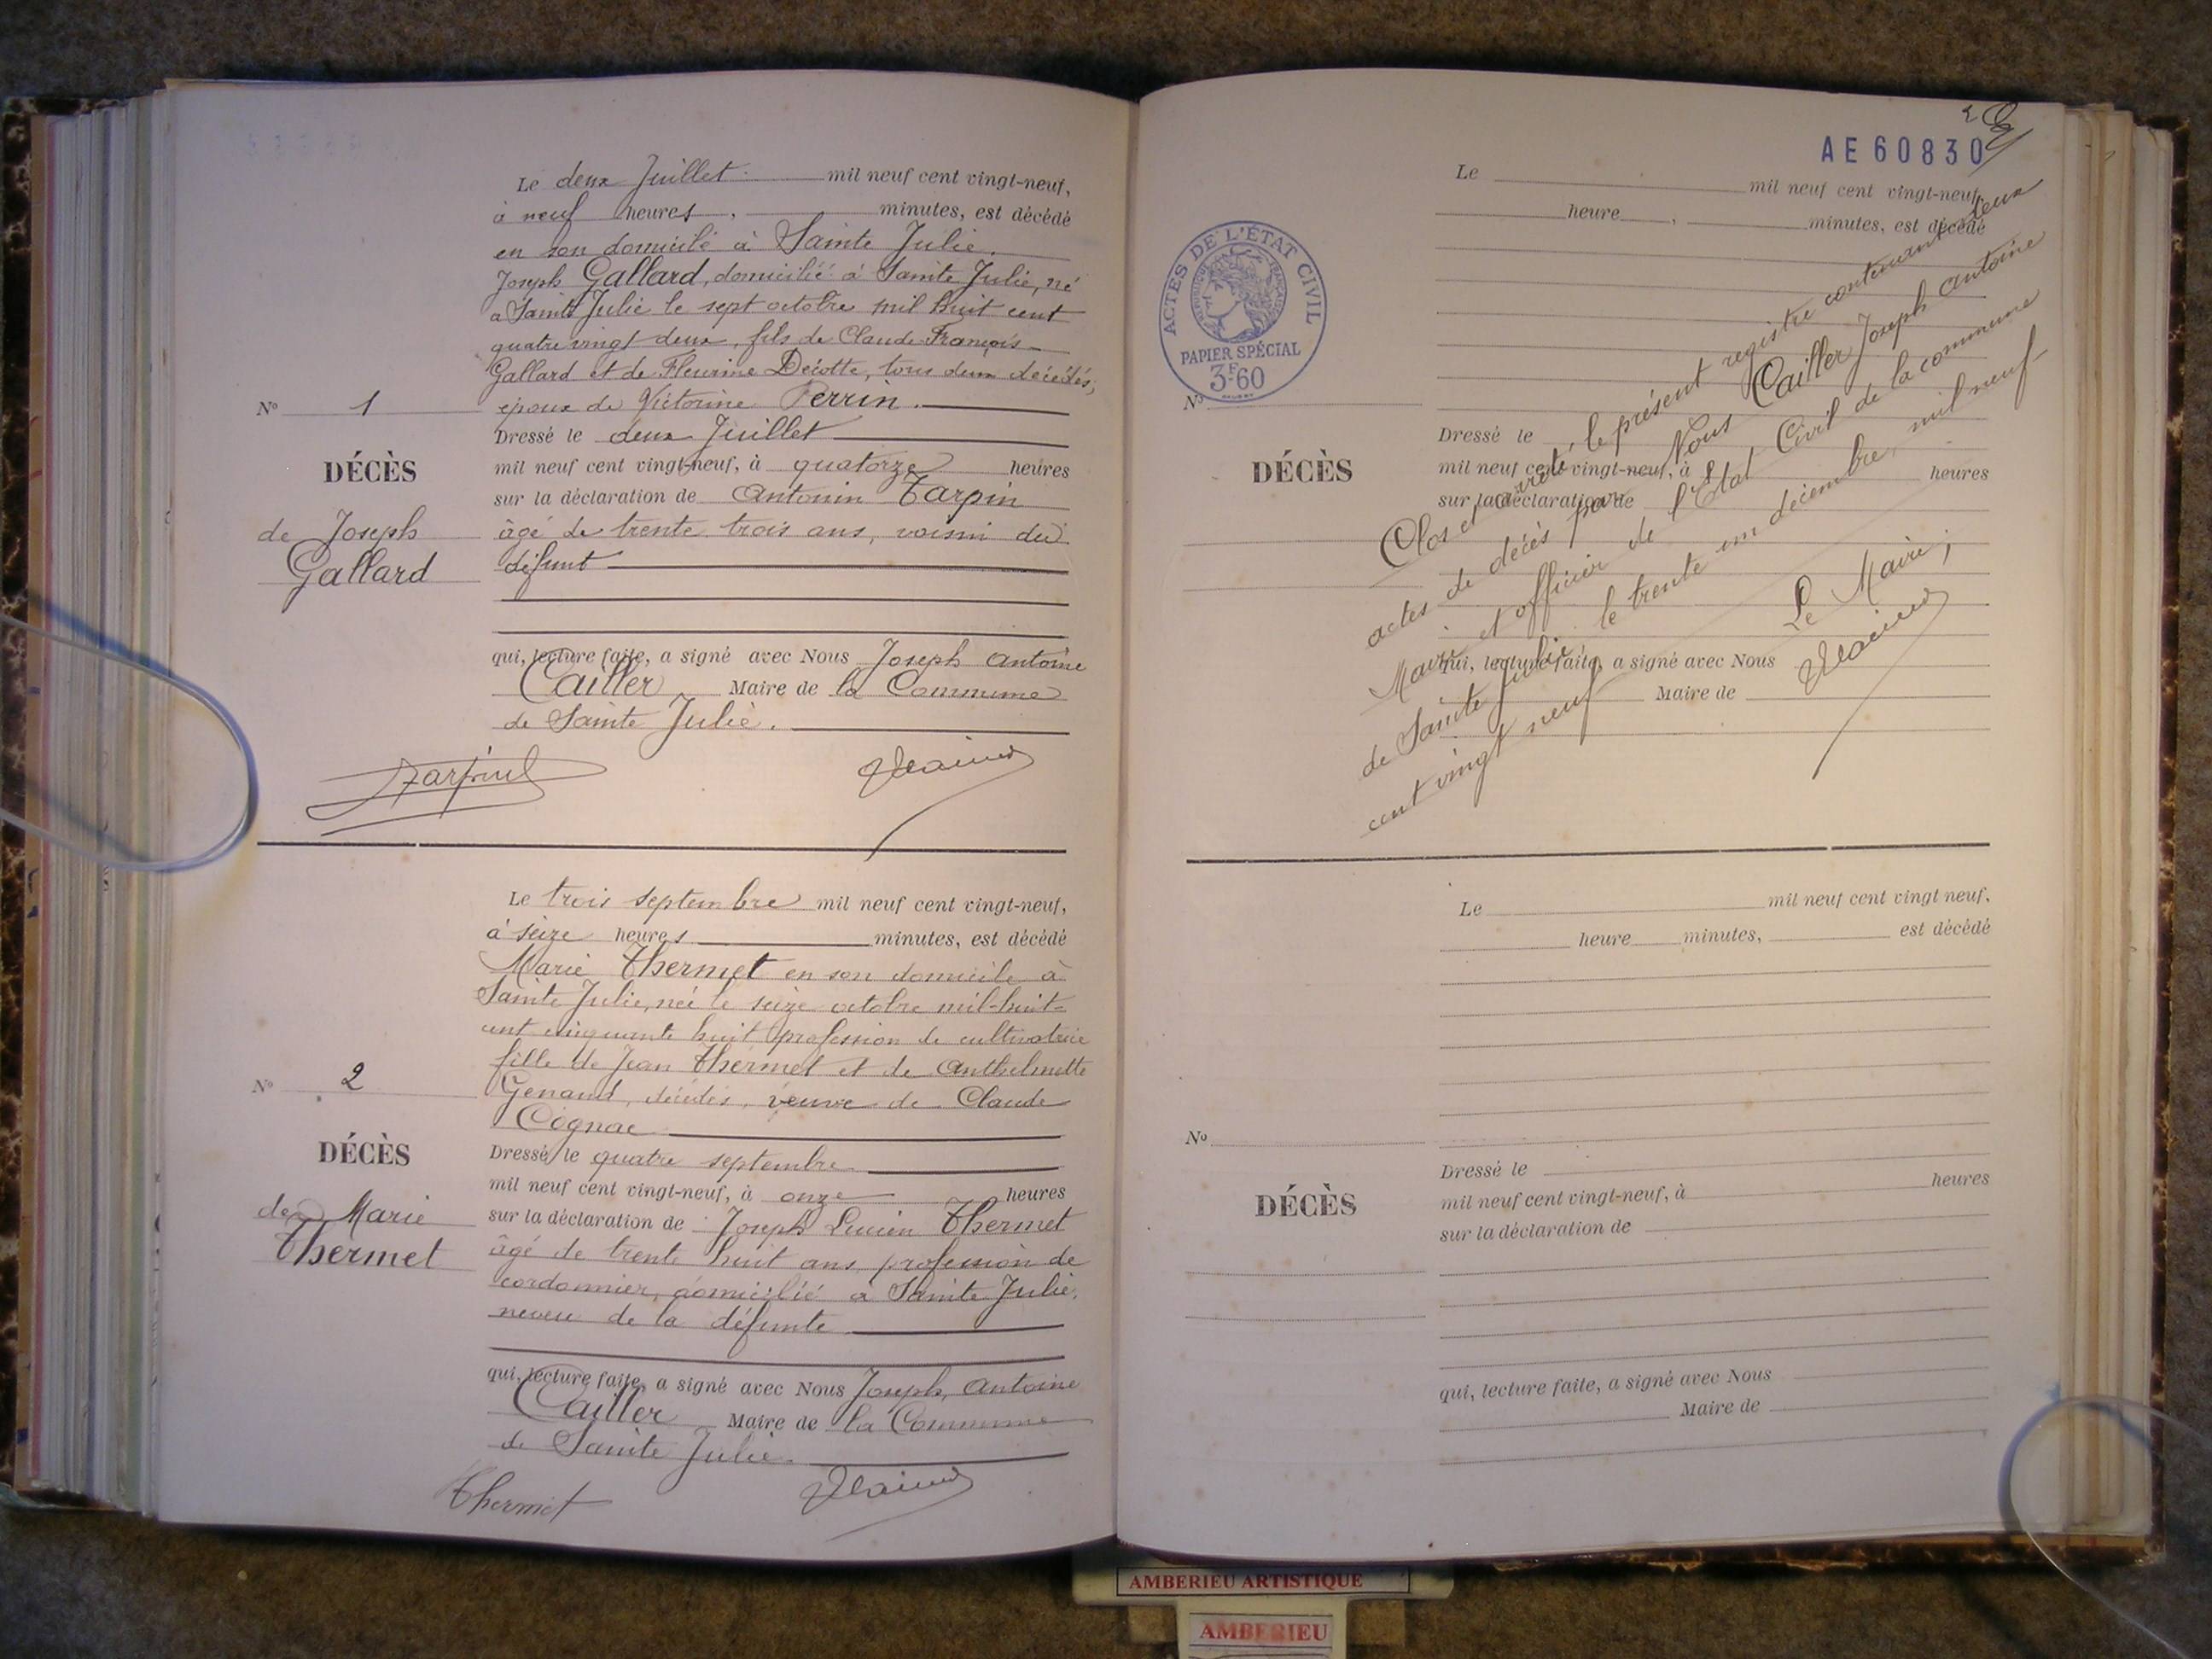 Le deux Juillet mil neuf cent vingt-neuf,
à neuf heures, minutes, est décédé
en son domicile à Sainte Julie.
Joseph Gallard, domicilié à Sainte Julie, né
à Sainte Julie le sept octobre mil huit cent
quatre vingt deux, fils de Claude François
Gallard et de Fleurine Décotte, tous deux décédés,
époux de Victorine Perrin.
Nº 1
Dressé le deux Juillet
mil neuf cent vingt-neuf, à quatorze heures
DÉCÈS
sur la déclaration de Antonin Tarpin
de Joseph
Gallard
âgé de trente trois ans, voisin du
défunt
qui, lecture faite, a signé avec Nous Joseph Antoine
Cailler Maire de la Commune
de Sainte Julie.
Tarpin
Le trois septembre mil neuf cent vingt-neuf,
à seize heures minutes, est décédé
Marie Thermet en son domicile à
Sainte Julie, née le seize octobre mil-huit-
cent cinquante huit profession de cultivatrice
fille de Jean Thermet et de Anthelmette
Genand, décédés, veuve de Claude
Cognac
Nº 2
Dressé le quatre septembre
mil neuf cent vingt-neuf, à onze heures
DÉCÈS
de Marie
Thermet
sur la déclaration de Joseph Lucien Thermet
âgé de trente huit ans profession de
cordonnier, domicilié à Sainte Julie,
neveu de la défunte
qui, lecture faite, a signé avec Nous Joseph, Antoine
Cailler Maire de la Commune
de Sainte Julie.
Thermet
2
AE60830
Le mil neuf cent vingt-neuf,
heure, minutes, est décédé
ACTES DE L'ÉTAT CIVIL
RÉPUBLIQUE FRANÇAISE
PAPIER SPÉCIAL
3F60
Nº
Dressé le
mil neuf cent vingt-neuf, à heures
DÉCÈS
sur la déclaration de
qui, lecture faite, a signé avec Nous
Maire de
Clos et arrêté, le présent registre contenant deux
actes de décès par Nous Cailler Joseph Antoine
Maire et officier de l'Etat Civil de la commune
de Sainte Julie, le trente un décembre, mil neuf
cent vingt neuf
Le Maire,
Le mil neuf cent vingt neuf,
heure minutes, est décédé
Nº
Dressé le
mil neuf cent vingt-neuf, à heures
DÉCÈS
sur la déclaration de
qui, lecture faite, a signé avec Nous
Maire de
AMBERIEU ARTISTIQUE
AMBERIEU